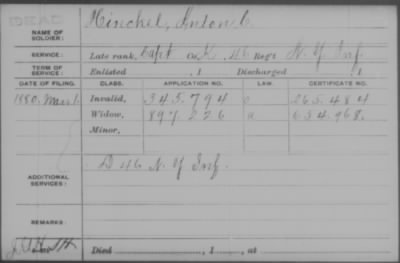 DEAD
NAME OF SOLDIER: Hinchel, Anton C.
SERVICE: Late rank, Capt Co. K, 46 Reg't N.Y. Inf.
TERM OF SERVICE: Enlisted , 1 Discharged , 1
DATE OF FILING. CLASS. APPLICATION NO. LAW. CERTIFICATE NO.
1880, Mar 1. Invalid, 345.794 265.484
Widow, 897.226 634.968.
Minor,
ADDITIONAL SERVICES: D 46 N.Y. Inf.
REMARKS:
Died , 1 , at